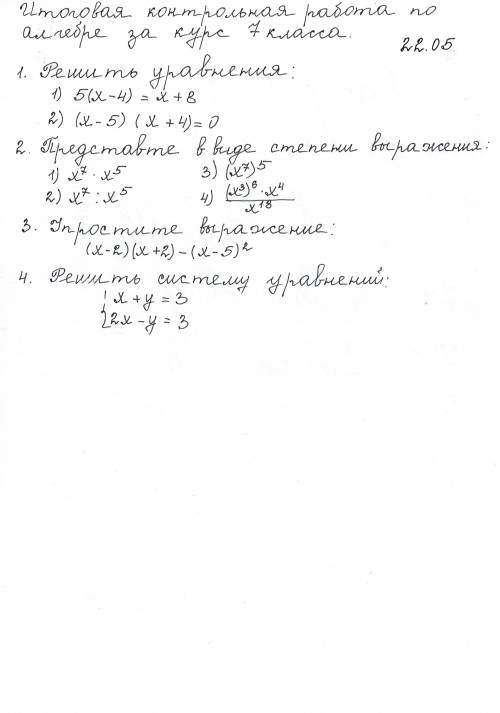 Итоговая контрольная работа по
алгебре за курс 7 класса.
22.05
1. Решить уравнения:
1) 5(x-4) = x+8
2) (x-5) (x+4)=0
2. Представте в виде степени выражения:
1) x⁷ · x⁵ 3) (x⁷)⁵
2) x⁷ : x⁵ 4) (x³)⁶ · x⁴ / x¹⁸
3. Упростите выражение:
(x-2)(x+2)-(x-5)²
4. Решить систему уравнений:
{ x+y = 3
2x-y = 3